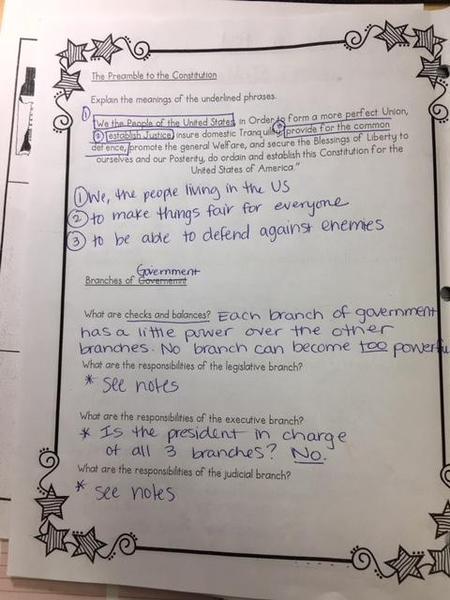 The Preamble to the Constitution
Explain the meanings of the underlined phrases.
①
"We the People of the United States, in Order to form a more perfect Union,
② establish Justice, insure domestic Tranquility, ③ provide for the common
defence, promote the general Welfare, and secure the Blessings of Liberty to
ourselves and our Posterity, do ordain and establish this Constitution for the
United States of America."
① We, the people living in the US
② to make things fair for everyone
③ to be able to defend against enemies
Government
Branches of Governemnt
What are checks and balances? Each branch of government
has a little power over the other
branches. No branch can become too powerfu
What are the responsibilities of the legislative branch?
* See notes
What are the responsibilities of the executive branch?
* Is the president in charge
of all 3 branches? No.
What are the responsibilities of the judicial branch?
* see notes